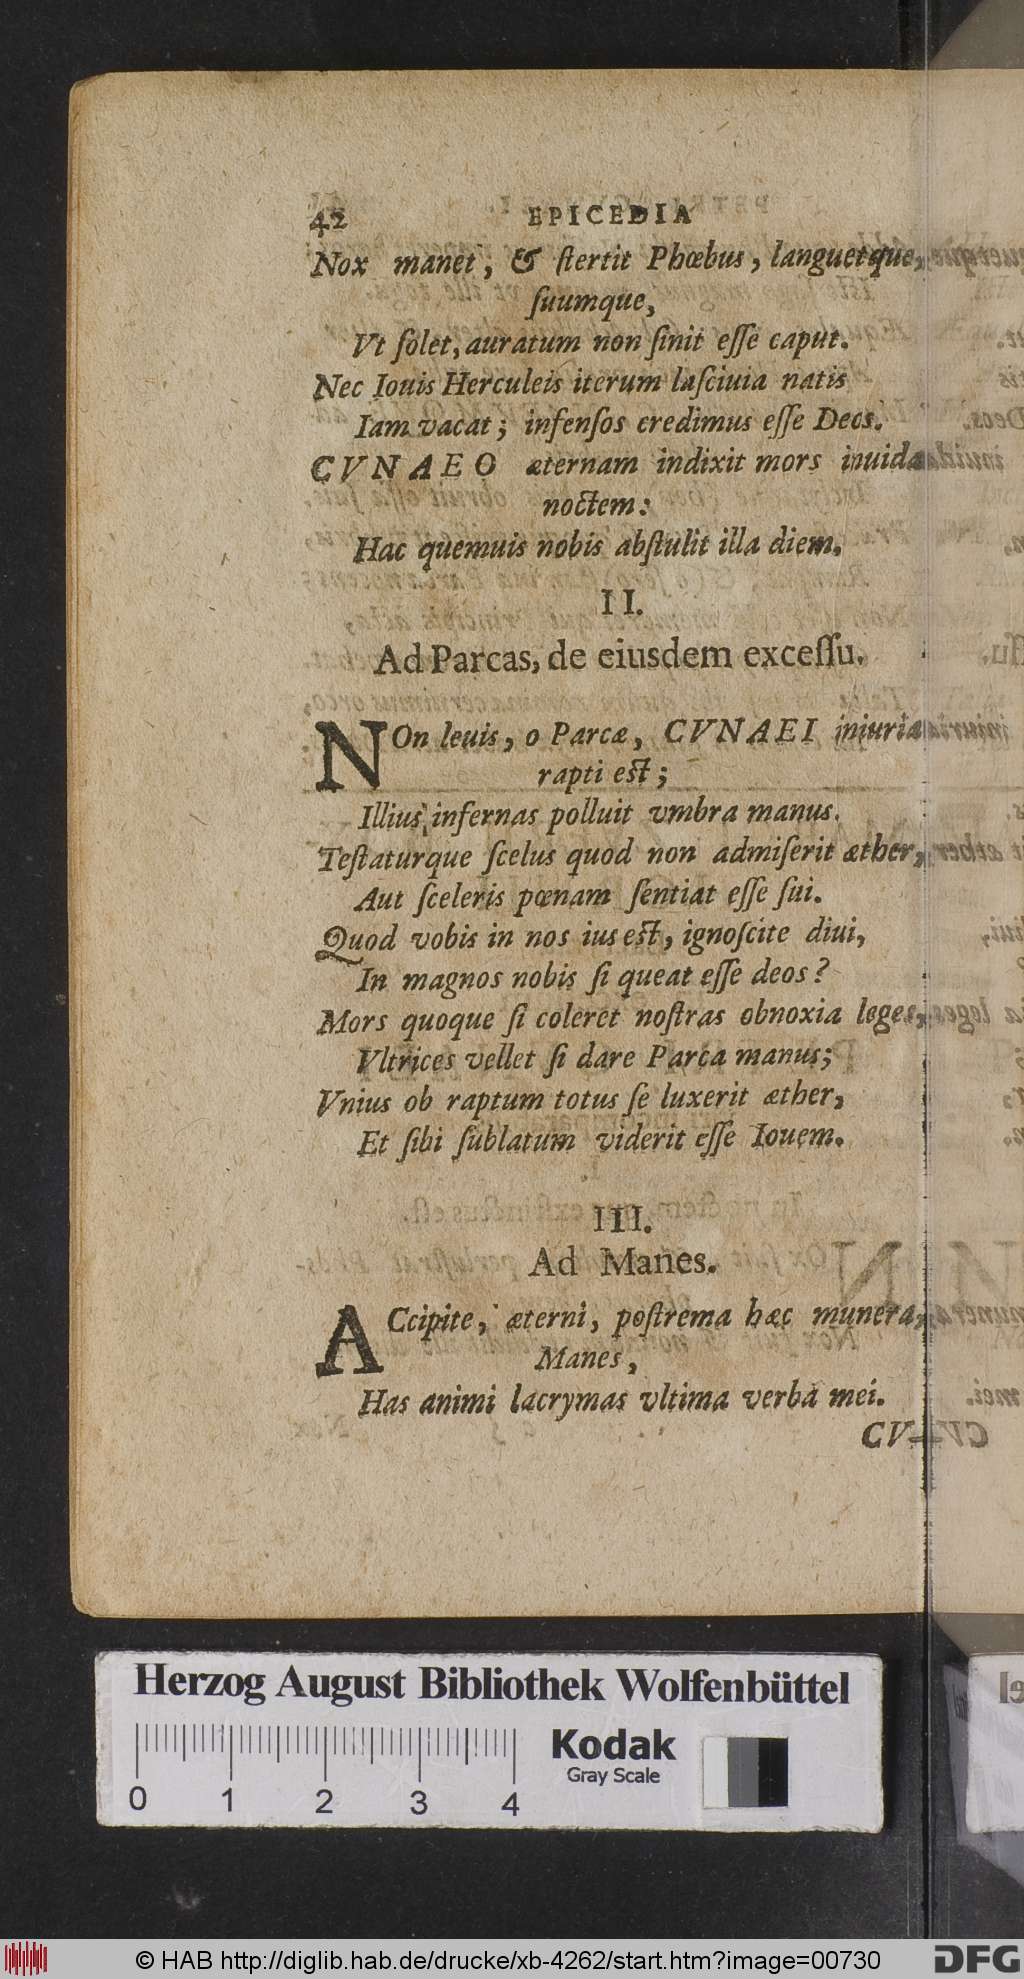 42 EPICEDIA
Nox manet, & ſtertit Phœbus, languetque,
ſuumque,
Vt ſolet, auratum non ſinit eſſe caput.
Nec Iouis Herculeis iterum laſciuia natis
Iam vacat; infenſos credimus eſſe Deos.
CVNAEO æternam indixit mors inuida
noctem:
Hac quemuis nobis abſtulit illa diem.
II.
Ad Parcas, de eiusdem exceſſu.
NOn leuis, o Parcæ, CVNAEI iniuria
rapti eſt;
Illius infernas polluit vmbra manus.
Teſtaturque ſcelus quod non admiſerit æther,
Aut ſceleris pœnam ſentiat eſſe ſui.
Quod vobis in nos ius eſt, ignoſcite diui,
In magnos nobis ſi queat eſſe deos?
Mors quoque ſi coleret noſtras obnoxia leges,
Vltrices vellet ſi dare Parca manus;
Vnius ob raptum totus ſe luxerit æther,
Et ſibi ſublatum viderit eſſe Iouem.
III.
Ad Manes.
ACcipite, æterni, poſtrema hæc munera,
Manes,
Has animi lacrymas vltima verba mei.
CV-
Herzog August Bibliothek Wolfenbüttel
Kodak
Gray Scale
0 1 2 3 4
© HAB http://diglib.hab.de/drucke/xb-4262/start.htm?image=00730
DFG